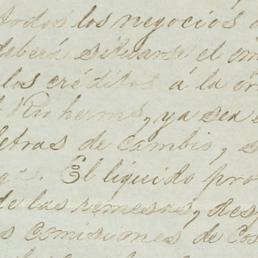 todos los negocios
deberá situarse el
los créditos á la
ya sea
letras de cambio, s
El líquido pro
de las remesas, des
s comisiones de cos